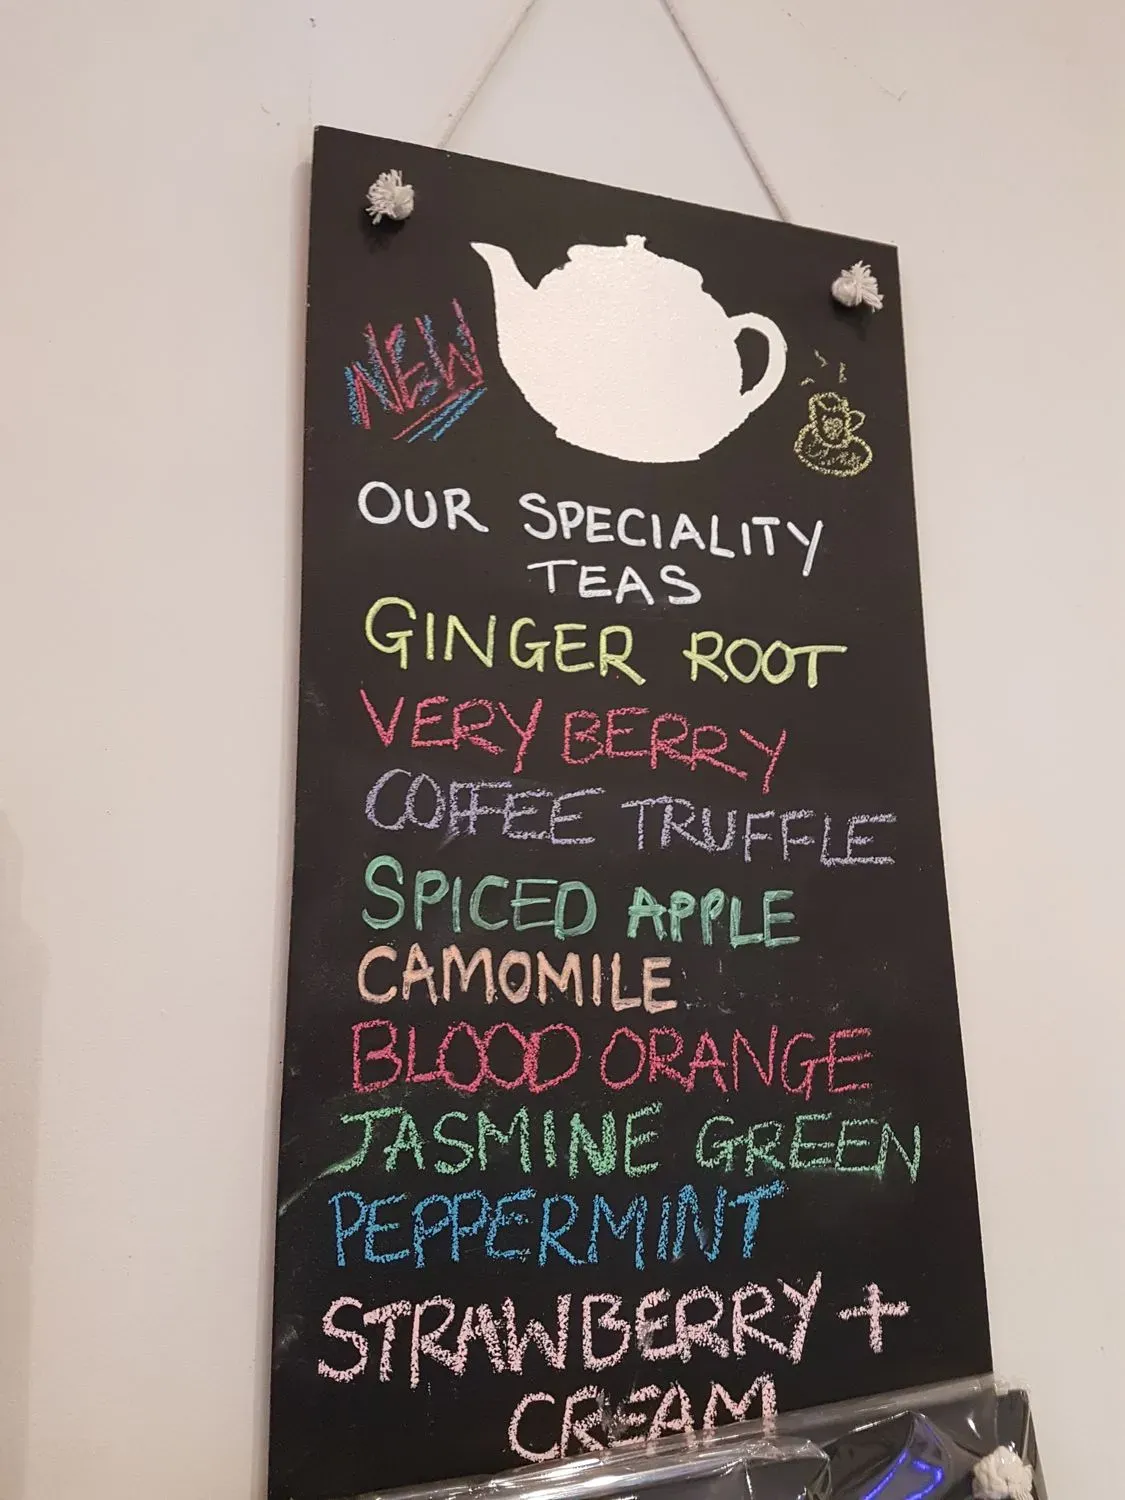 NEW
OUR SPECIALITY
TEAS
GINGER ROOT
VERY BERRY
COFFEE TRUFFLE
SPICED APPLE
CAMOMILE
BLOOD ORANGE
JASMINE GREEN
PEPPERMINT
STRAWBERRY +
CREAM